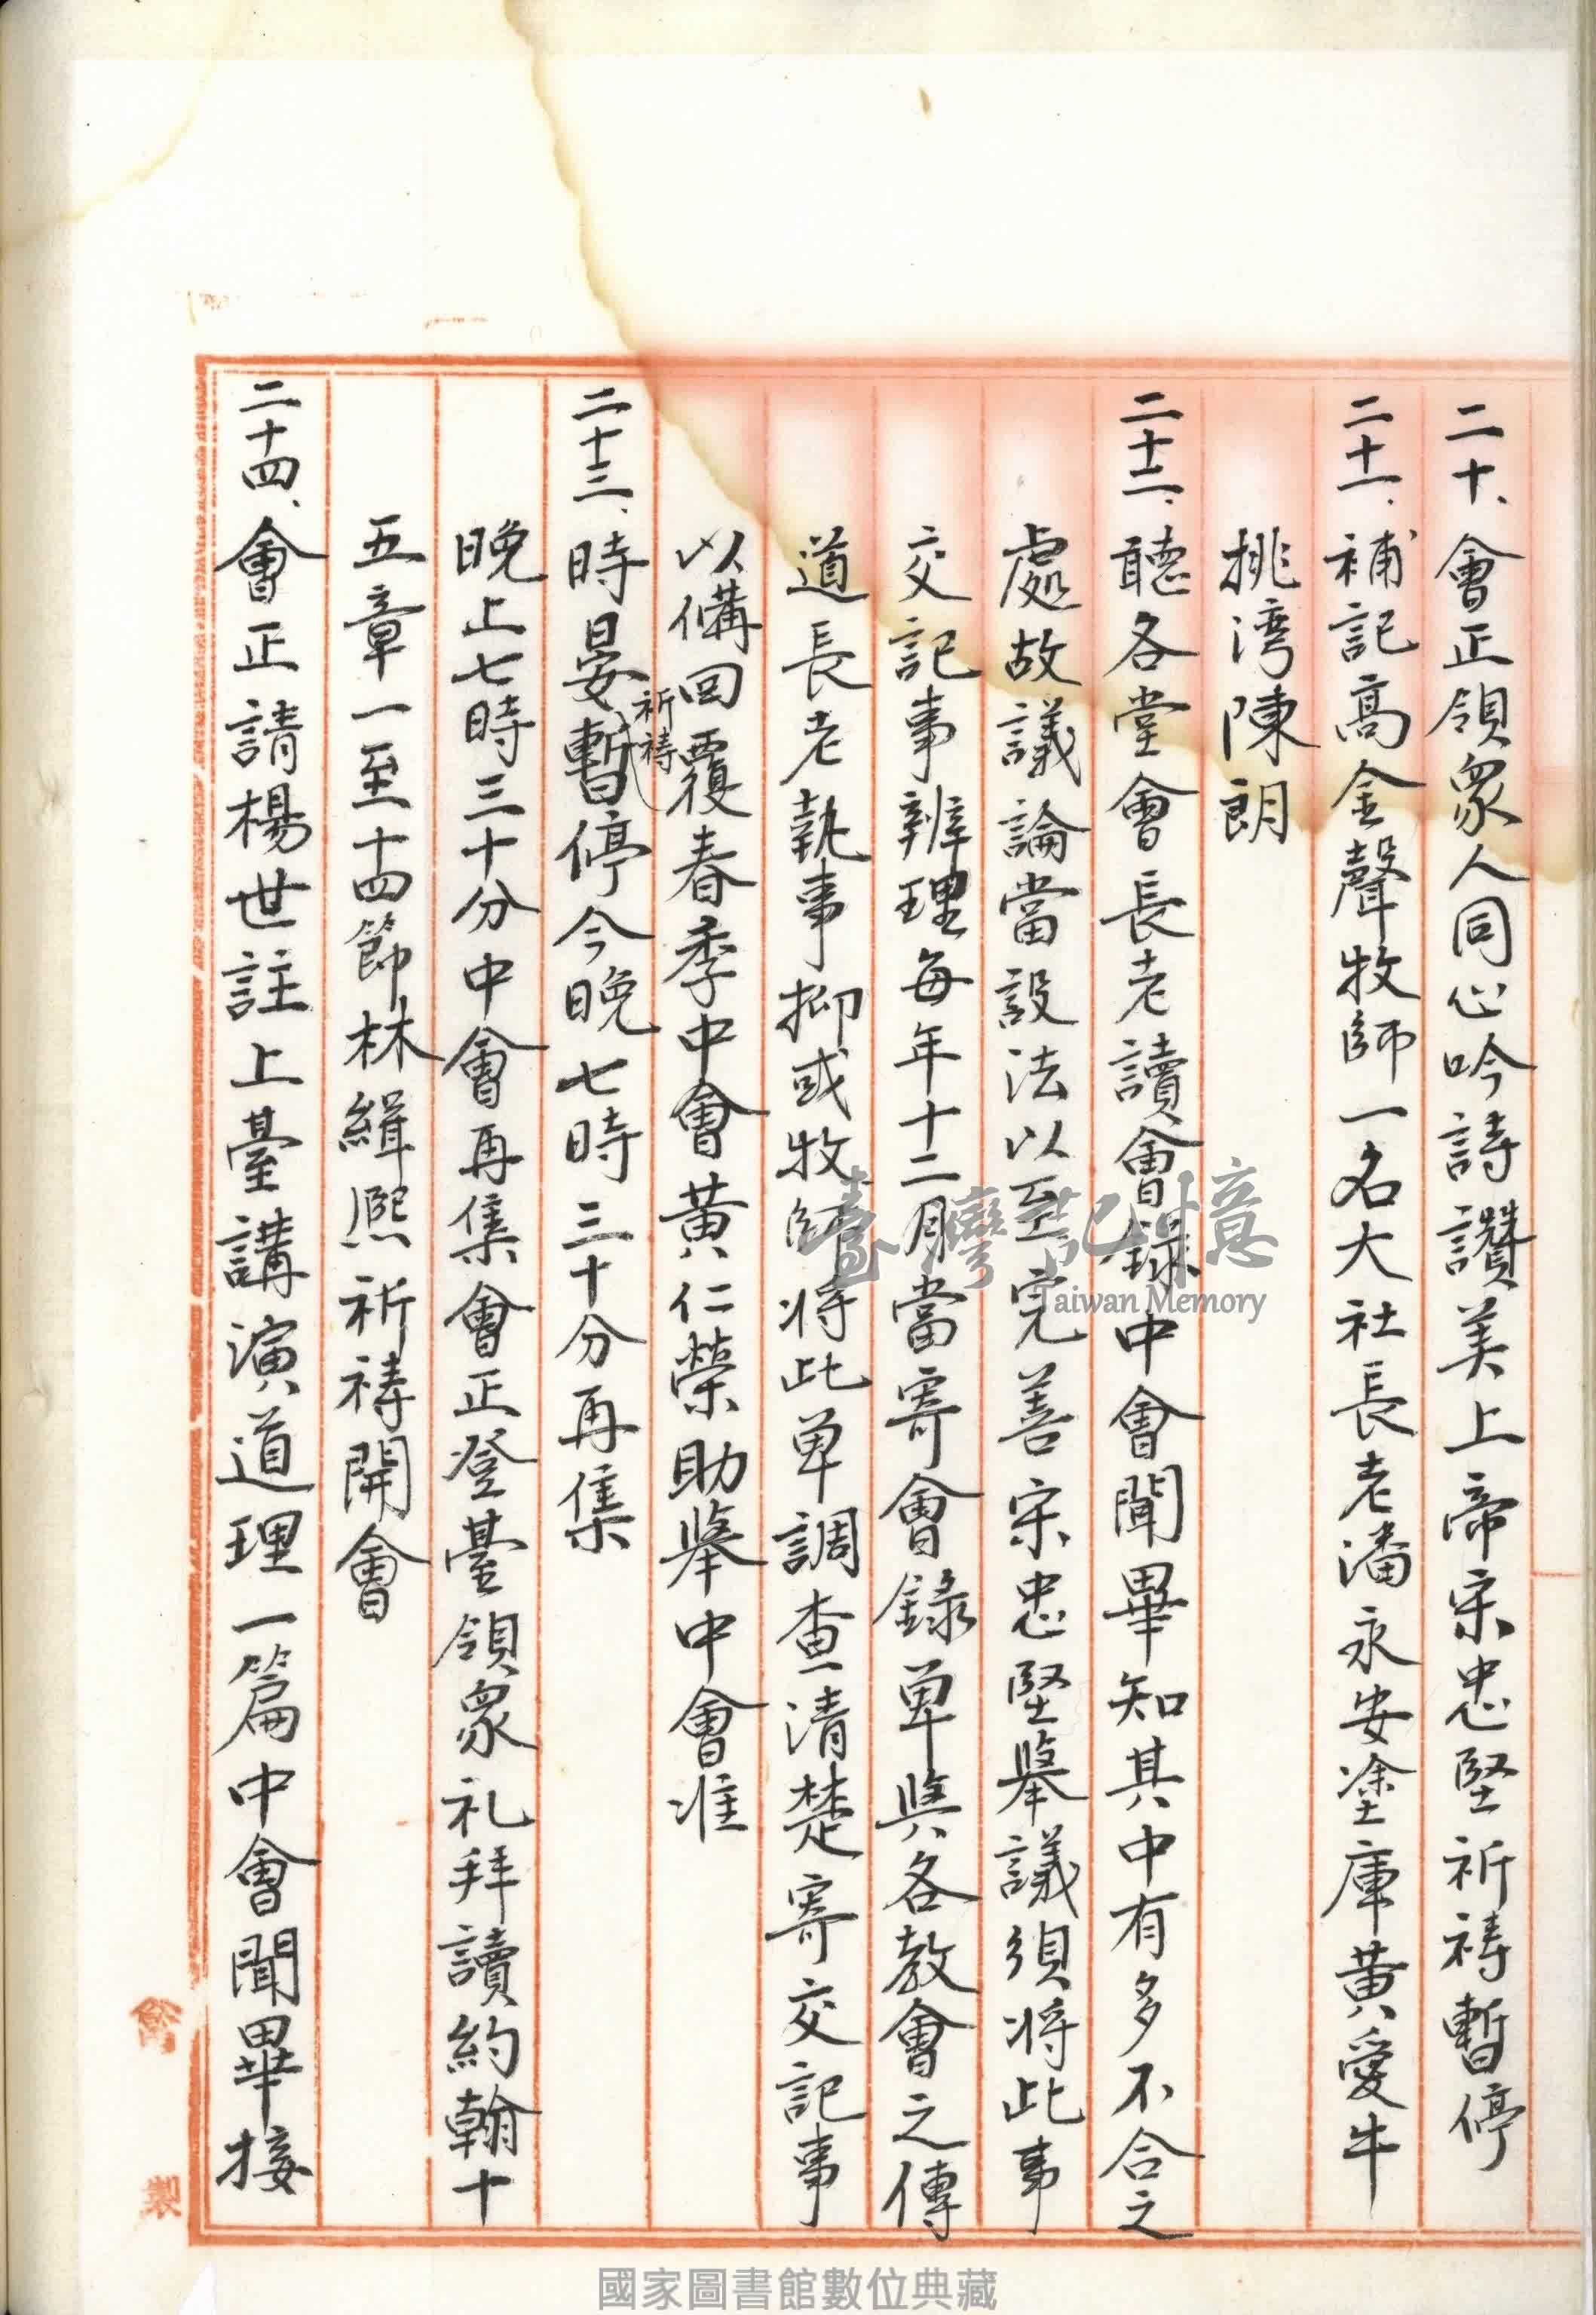 二十、會正領眾人同心吟詩讚美上帝宋忠堅祈禱暫停
二十一、補記高金聲牧師一名大社長老潘永安塗庫黃愛牛
挑湾陳朗
二十二、聽各堂會長老讀會録中會聞畢知其中有多不合之
處故議論當設法以至完善宋忠堅舉議須将此事
交記事辦理每年十二月當寄會錄单與各教會之傳
道長老執事抑或牧師将此单調查清楚寄交記事
以備回覆春季中會黃仁榮助舉中會准
二十三、時晏祈禱暫停今晚七時三十分再集
晚上七時三十分中會再集會正登臺領眾礼拜讀約翰十
五章一至十四節林緝熙祈禱開會
二十四、會正請楊世註上臺講演道理一篇中會聞畢接
製
臺灣記憶
Taiwan Memory
國家圖書館數位典藏